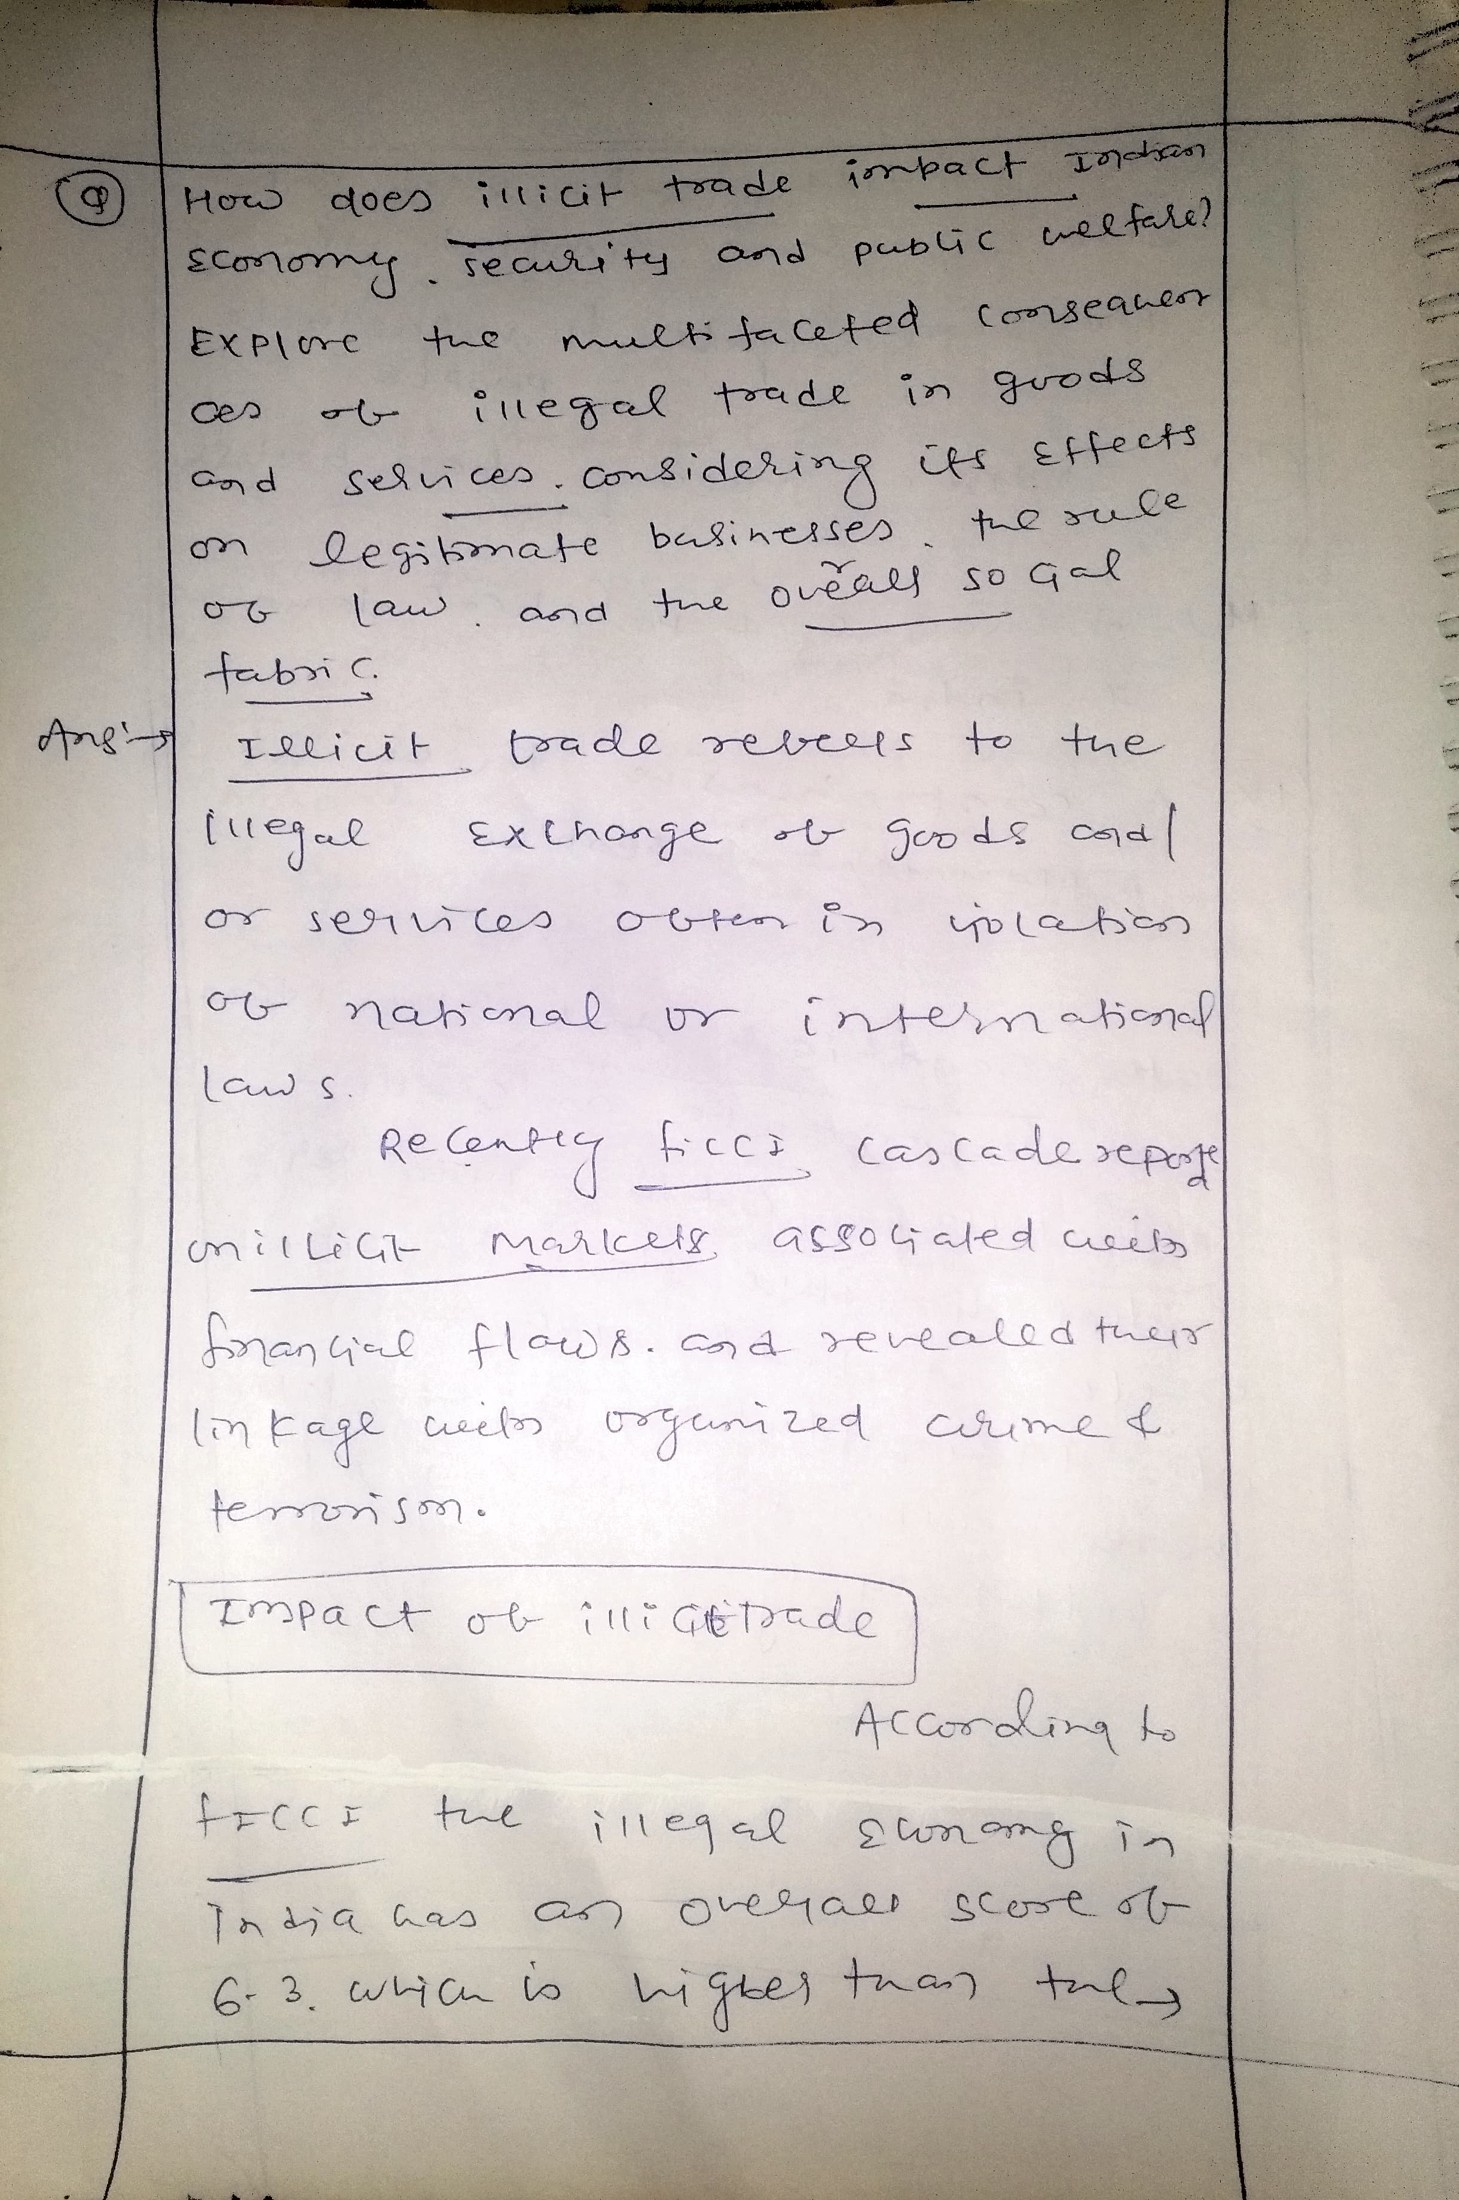 Q How does illicit trade impact Indian
Economy, security and public welfare?
Explore the multifaceted consequen
ces of illegal trade in goods
and services, considering its effects
on legitimate businesses, the rule
of law, and the overall social
fabric.
Ans:→ Illicit trade refers to the
illegal exchange of goods and/
or services often in violation
of national or international
laws.
Recently FICCI cascade reported
on illicit markets associated with
financial flows. and revealed their
linkage with organized crime &
terrorism.
Impact of illicit trade
According to
FICCI the illegal economy in
India has an overall score of
6.3. which is higher than the →